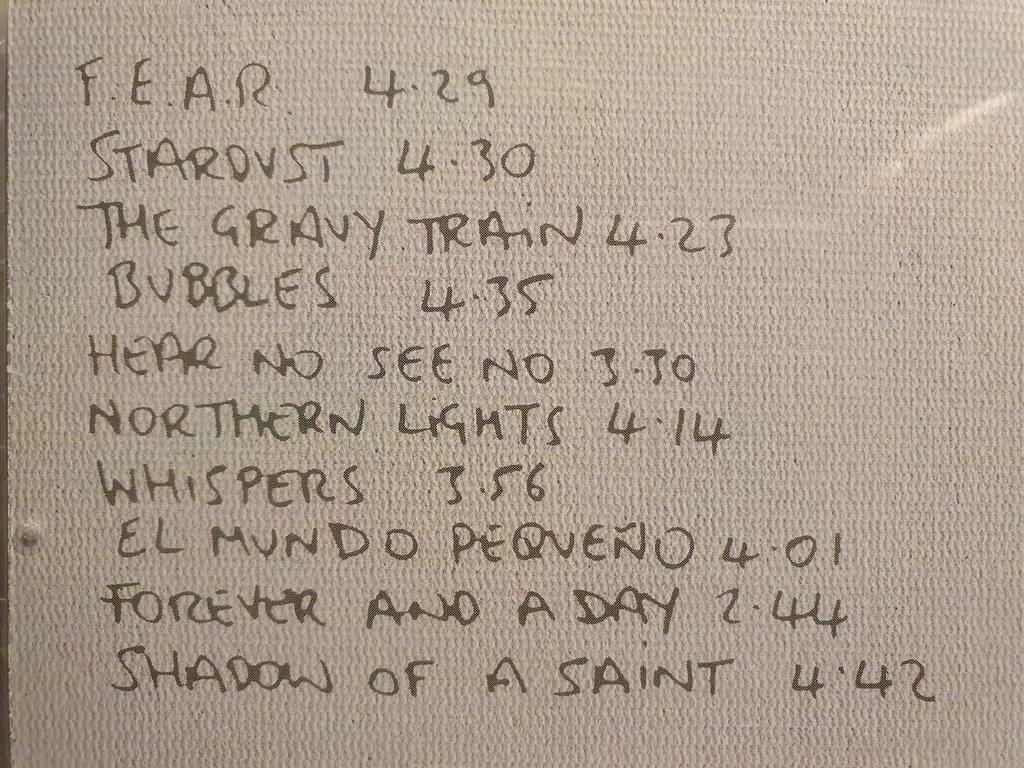 F.E.A.R. 4.29
STARDUST 4.30
THE GRAVY TRAIN 4.23
BUBBLES 4.35
HEAR NO SEE NO 3.30
NORTHERN LIGHTS 4.14
WHISPERS 3.56
EL MUNDO PEQUEÑO 4.01
FOREVER AND A DAY 2.44
SHADOW OF A SAINT 4.42